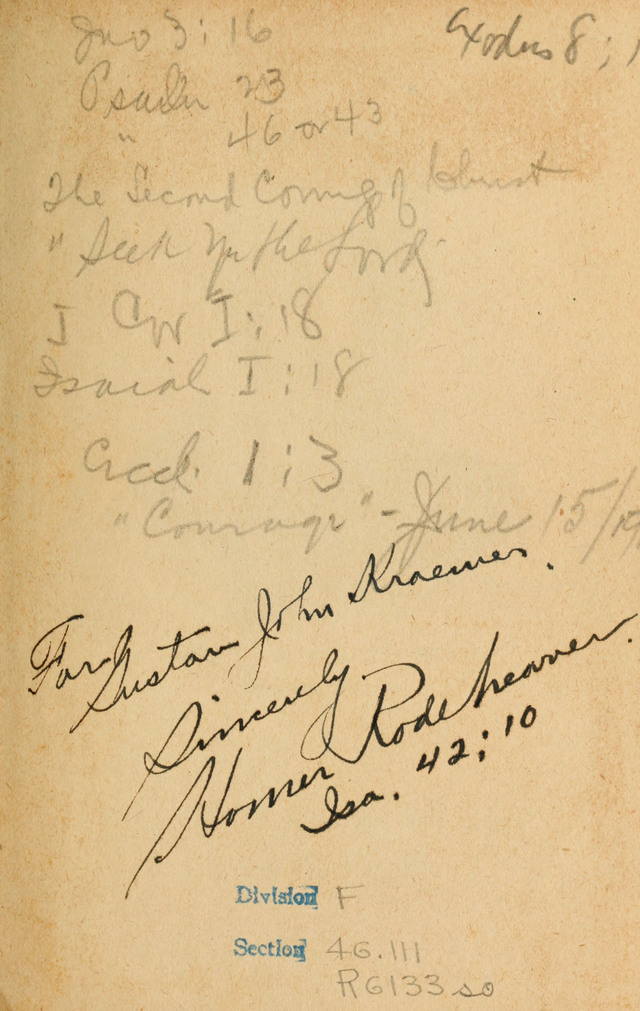 Jno 3:16
Exodus 8:1
Psalm 23
" 46 or 43
The Second Coming of Christ
" Seek Ye the Lord
I Cor I:18
Isaiah I:18
Eccl. 1:3
"Courage" - June 15/
For Gustav John Kraemer.
Sincerely
Homer Rodeheaver.
Isa. 42:10
Division F
Section 46.111
R6133 so